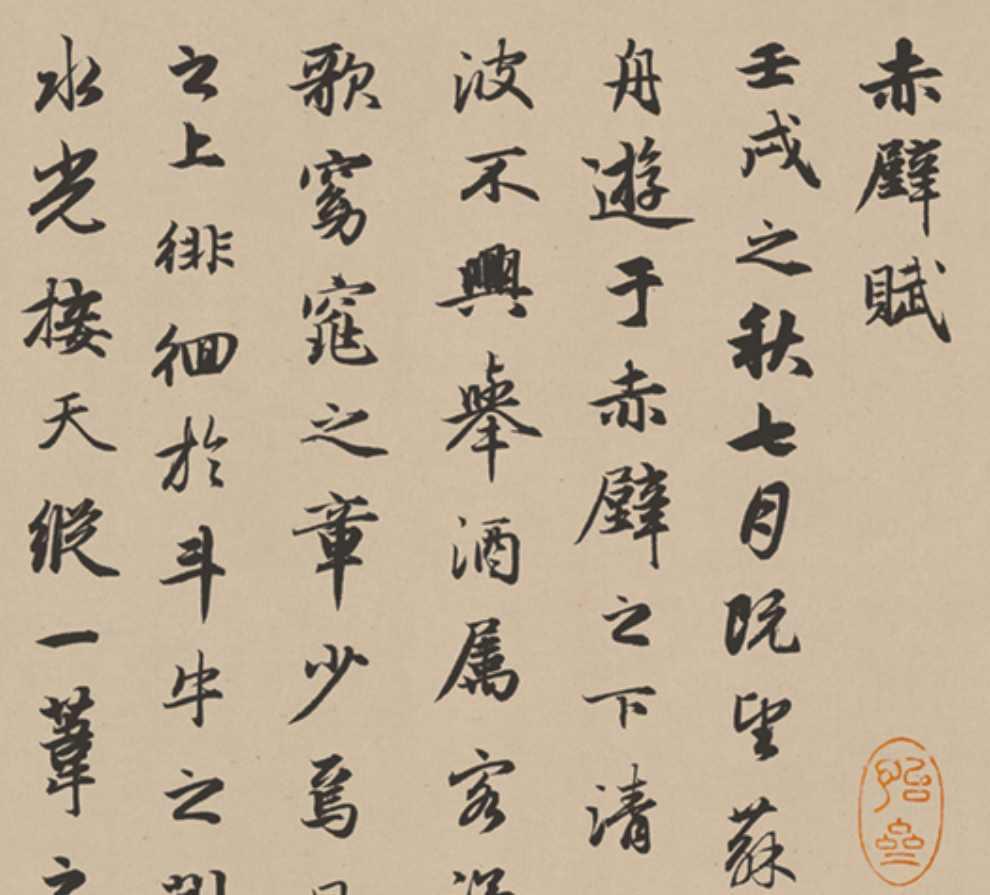 赤壁賦
壬戌之秋七月既望蘇
舟遊于赤壁之下清
波不興舉酒属客
歌窈窕之章少焉
之上徘徊於斗牛之
水光接天縱一葦之